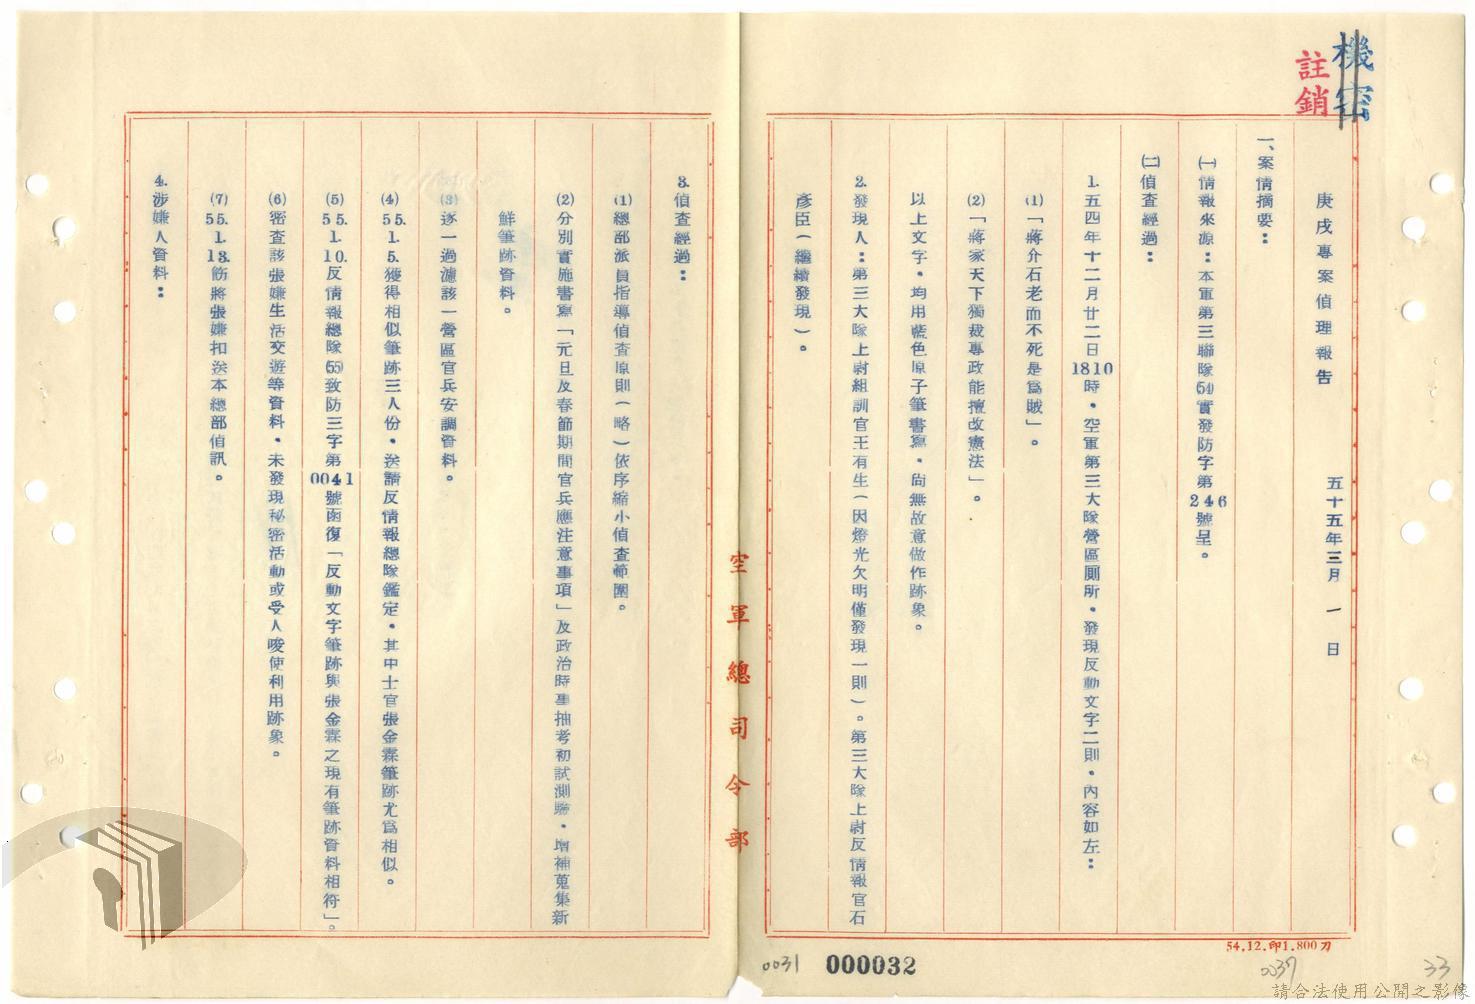 機密
註銷
庚戌專案偵理報告
五十五年三月一日
一、案情摘要：
㈠情報來源：本軍第三聯隊(54)實發防字第246號呈。
㈡偵查經過：
1.五四年十二月廿二日1810時，空軍第三大隊營區厠所，發現反動文字二則，內容如左：
(1)「蔣介石老而不死是爲賊」。
(2)「蔣家天下獨裁專政能擅改憲法」。
以上文字，均用藍色原子筆書寫，尚無故意做作跡象。
2.發現人：第三大隊上尉組訓官王有生（因燈光欠明僅發現一則）。第三大隊上尉反情報官石
彥臣（繼續發現）。
空軍總司令部
3.偵查經過：
(1)總部派員指導偵查原則（略）依序縮小偵查範圍。
(2)分別實施書寫「元旦及春節期間官兵應注意事項」及政治時事抽考初試測驗，增補蒐集新
鮮筆跡資料。
(3)逐一過濾該一營區官兵安調資料。
(4)55.1.5.獲得相似筆跡三人份，送請反情報總隊鑑定，其中士官張金霖筆跡尤爲相似。
(5)55.1.10.反情報總隊(55)致防三字第0041號函復「反動文字筆跡與張金霖之現有筆跡資料相符」。
(6)密查該張嫌生活交遊等資料，未發現秘密活動或受人唆使利用跡象。
(7)55.1.13.飭將張嫌扣送本總部偵訊。
4.涉嫌人資料：
54.12.印1.800刀
0031
000032
0037
33
請合法使用公開之影像